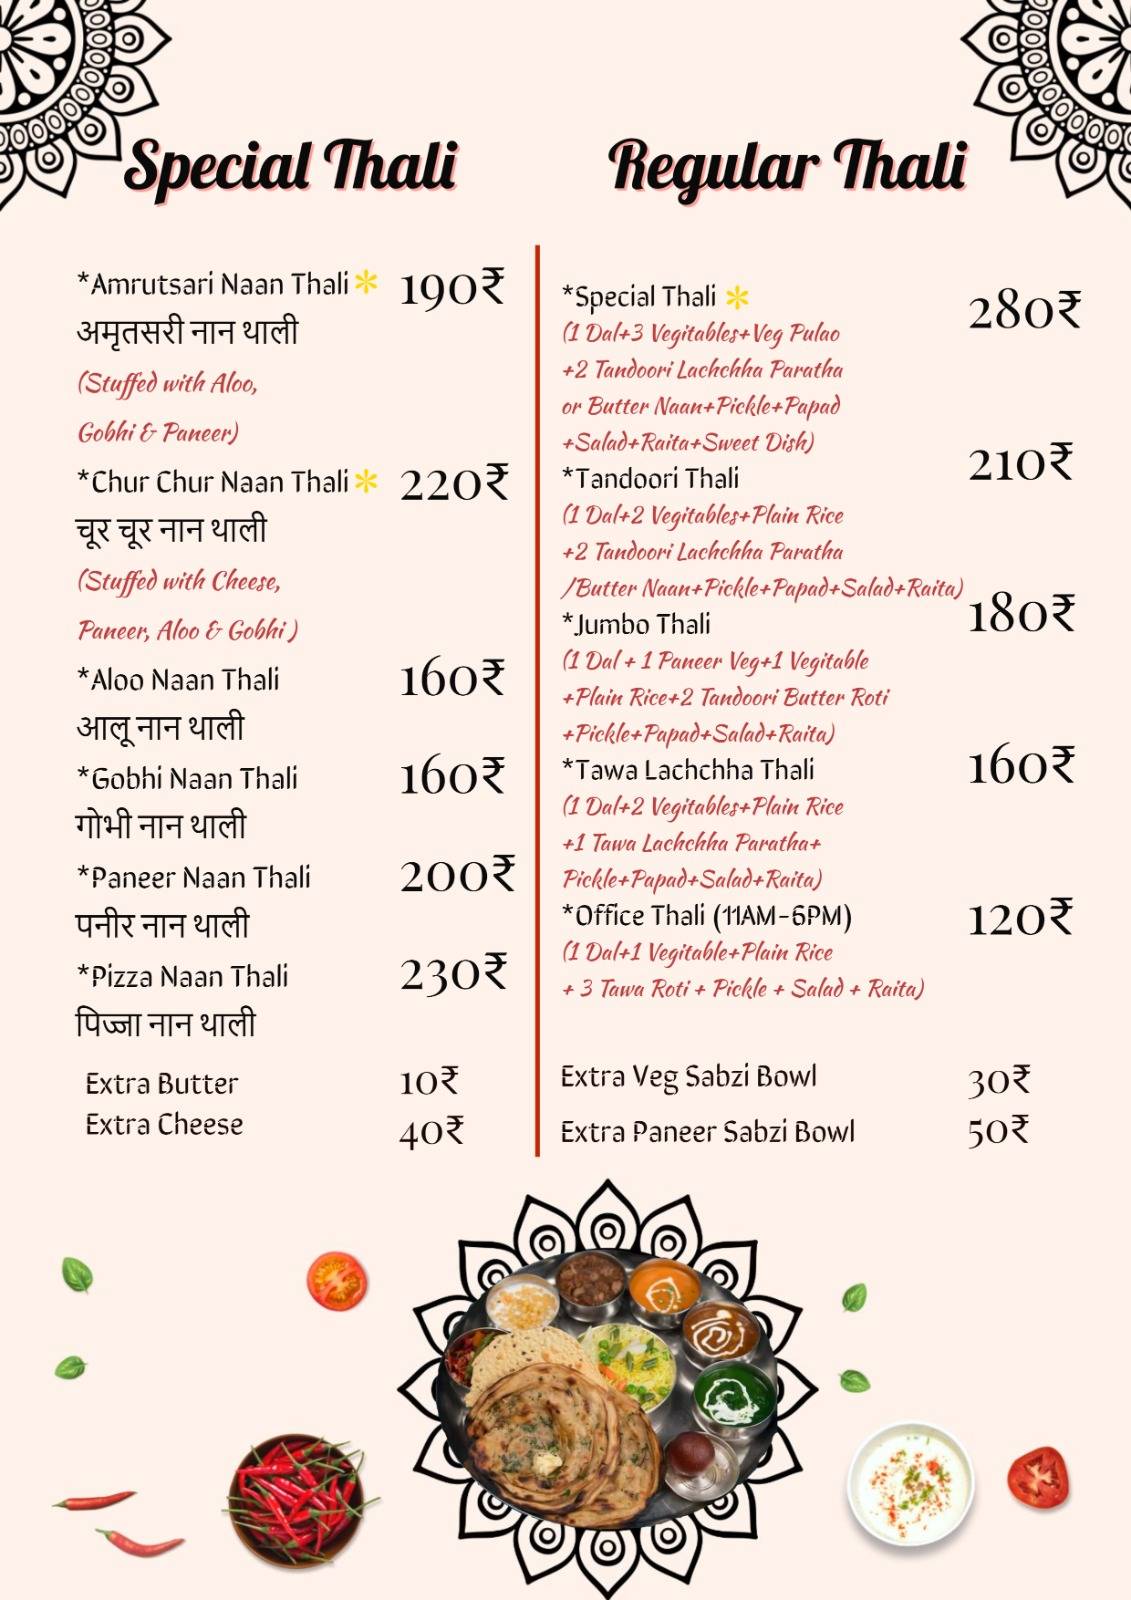 Special Thali
*Amrutsari Naan Thali 190₹
अमृतसरी नान थाली
(Stuffed with Aloo,
Gobhi & Paneer)
*Chur Chur Naan Thali 220₹
चूर चूर नान थाली
(Stuffed with Cheese,
Paneer, Aloo & Gobhi )
*Aloo Naan Thali 160₹
आलू नान थाली
*Gobhi Naan Thali 160₹
गोभी नान थाली
*Paneer Naan Thali 200₹
पनीर नान थाली
*Pizza Naan Thali 230₹
पिज्जा नान थाली
Extra Butter 10₹
Extra Cheese 40₹
Regular Thali
*Special Thali 280₹
(1 Dal+3 Vegitables+Veg Pulao
+2 Tandoori Lachchha Paratha
or Butter Naan+Pickle+Papad
+Salad+Raita+Sweet Dish)
*Tandoori Thali 210₹
(1 Dal+2 Vegitables+Plain Rice
+2 Tandoori Lachchha Paratha
/Butter Naan+Pickle+Papad+Salad+Raita)
*Jumbo Thali 180₹
(1 Dal + 1 Paneer Veg+1 Vegitable
+Plain Rice+2 Tandoori Butter Roti
+Pickle+Papad+Salad+Raita)
*Tawa Lachchha Thali 160₹
(1 Dal+2 Vegitables+Plain Rice
+1 Tawa Lachchha Paratha+
Pickle+Papad+Salad+Raita)
*Office Thali (11AM-6PM) 120₹
(1 Dal+1 Vegitable+Plain Rice
+ 3 Tawa Roti + Pickle + Salad + Raita)
Extra Veg Sabzi Bowl 30₹
Extra Paneer Sabzi Bowl 50₹